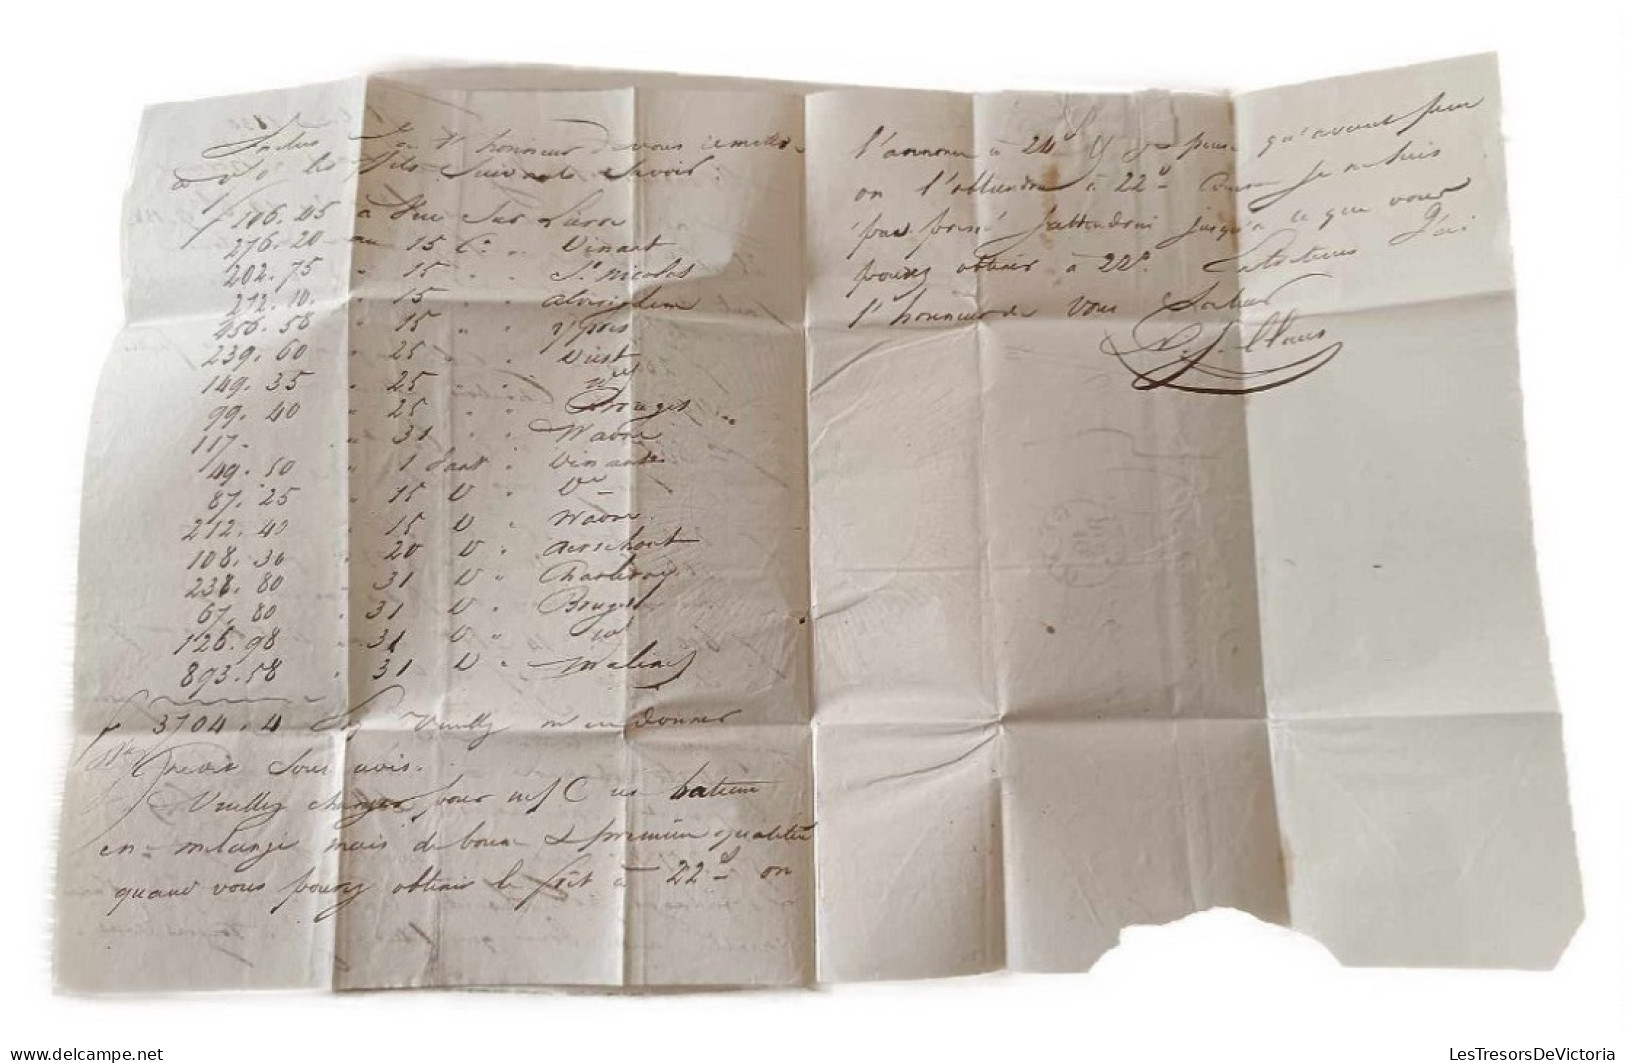 Inclus J'ai l'honneur de vous remettre
à les suivants Savoir:
f 106.05 à vue sur Lierre
276.20 au 15 Ct " Dinant
202.75 " 15 " " St Nicolas
212.10. " 15 " "
256.58 " 15 " " Ypres
239.60 " 25 " " Diest
149.35 " 25 " "
99.40 " 25 " " Bruges
117- " 31 " " Wavre
49.50 " 1 " Dinant
87.25 " 15 D "
212.40 " 15 D " Wavre
108.30 " 20 D " Aerschout
238.80 " 31 D " Charleroy
67.80 " 31 D " Bruges
126.98 " 31 D "
893.58 " 31 D " Malines
f 3704.4 Veuillez m'en donner
Crédit Sous avis.
Veuillez charger pour un bateau
en mélange mais de bonne & première qualité
quand vous pourez obtenir le frêt à 22 on
l'annonce à 24 qu'avant peu
on l'obtiendra à 22 Comme Je ne Suis
pas pressé J'attendrai jusqu'à ce que vous
pourez obtenir à 22 J'ai
l'honneur de vous Saluer
Claus
LesTresorsDeVictoria
www.delcampe.net